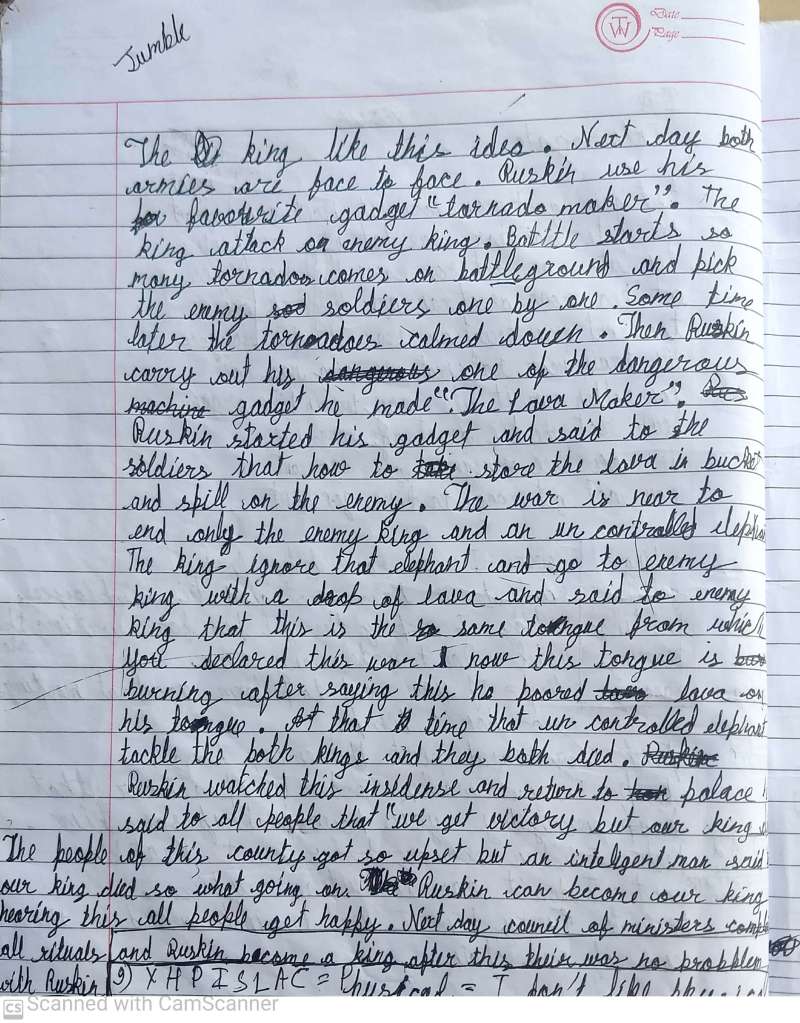 Jumble
TW
Date
Page
The king like this idea. Next day both
armies are face to face. Ruskin use his
favourite gadget "tornado maker". The
king attack on enemy king. Battle starts so
many tornados comes on battleground and pick
the enemy soldiers one by one. Some time
later the tornadoes calmed down. Then Ruskin
carry out his dangerous one of the dangerous
machine gadget he made "The Lava Maker".
Ruskin started his gadget and said to the
soldiers that how to store the lava in bucket
and spill on the enemy. The war is near to
end only the enemy king and an un controlled
The king ignore that elephant and go to enemy
king with a drop of lava and said to enemy
king that this is the same tongue from which
you declared this war now this tongue is
burning after saying this he poored lava on
his tongue. At that time that un controlled elephant
tackle the both kings and they both died.
Ruskin watched this insidense and return to palace
said to all people that "we get victory but our king
The people of this county got so upset but an inteligent man said
our king died so what going on. Ruskin can become our king
hearing this all people get happy. Next day council of ministers
all rituals and Ruskin become a king after this their was no problem
with Ruskin 9) X H P I S L A C = Physical = I don't like
CS Scanned with CamScanner